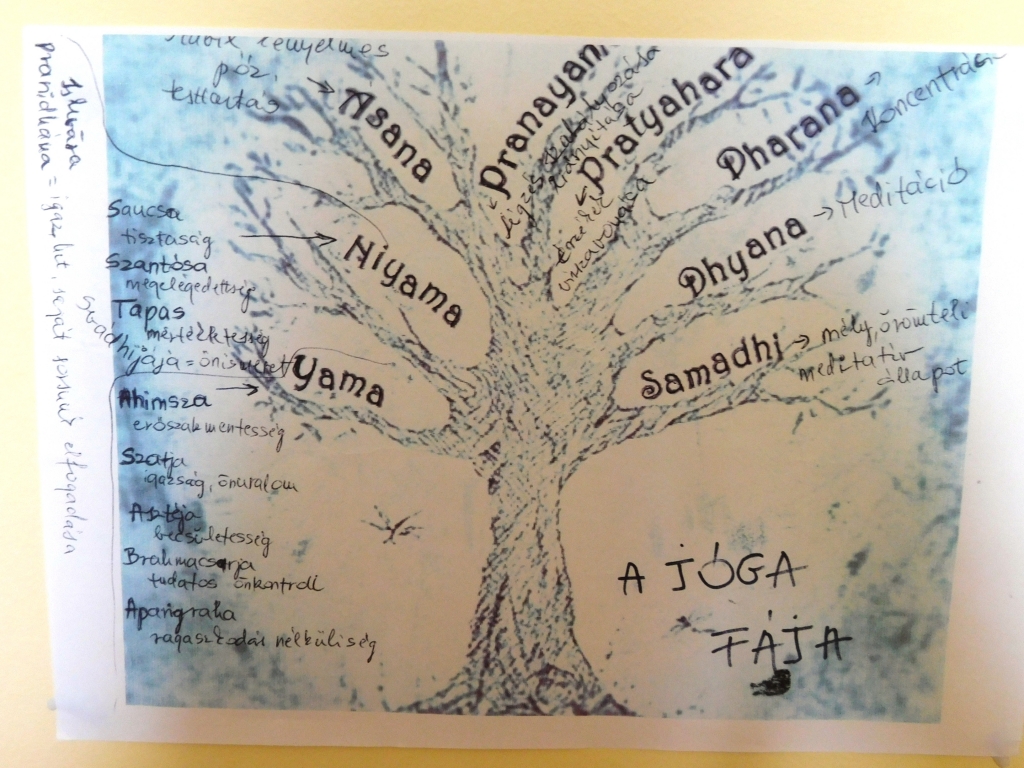 póz,
testtartás
Asana
Pranayam
légzés szabályozása
irányítása
Pratyahara
érzékek
visszavonása
Dharana
Koncentráció
Dhyana
Meditáció
Samadhi
mély, örömteli
meditatív
állapot
Niyama
Yama
Saucsa
tisztaság
Szantósa
megelégedettség
Tapas
mértékletesség
Ahimsza
erőszakmentesség
Szatja
igazság, önuralom
Asztéja
becsületesség
Brahmacsarja
tudatos önkontroll
Aparigraha
ragaszkodás nélküliség
Pranidhana = igazhit, saját sorsunk elfogadása
A JÓGA
FÁJA